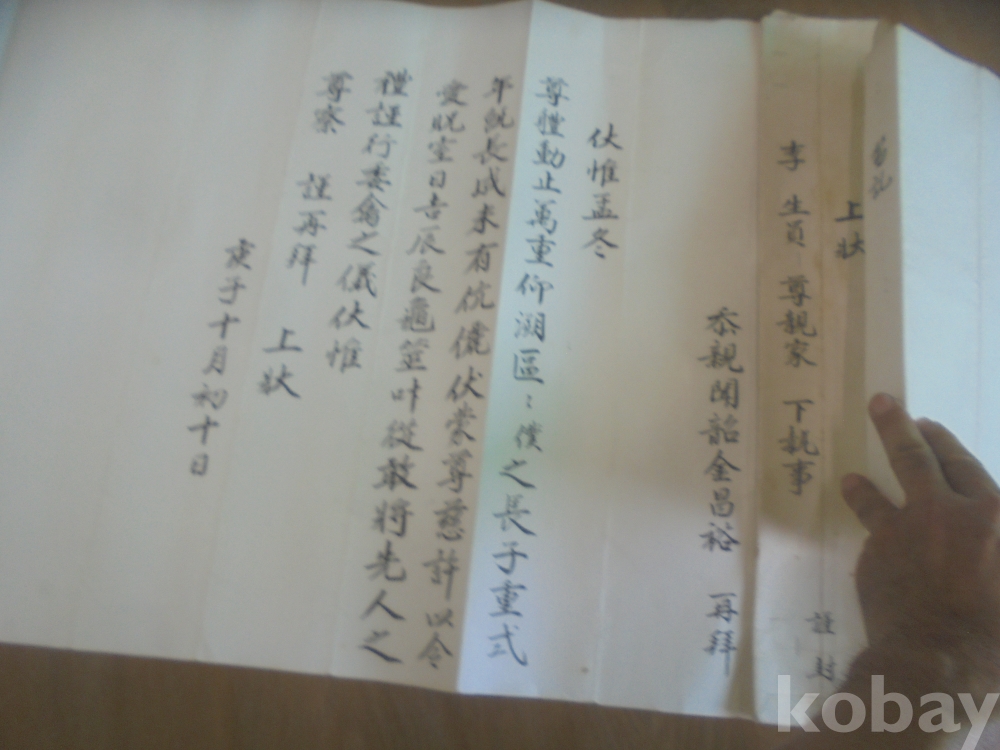 上狀
李 生員 尊親家 下執事
謹 封
忝親聞韶金昌裕 再拜
伏惟孟冬
尊體動止萬重仰溯區〻僕之長子重式
年旣長成未有伉儷伏蒙尊慈許以令
愛貺室日吉辰良龜筮叶從敢將先人之
禮謹行委禽之儀伏惟
尊察 謹再拜 上狀
庚子十月初十日
kobay